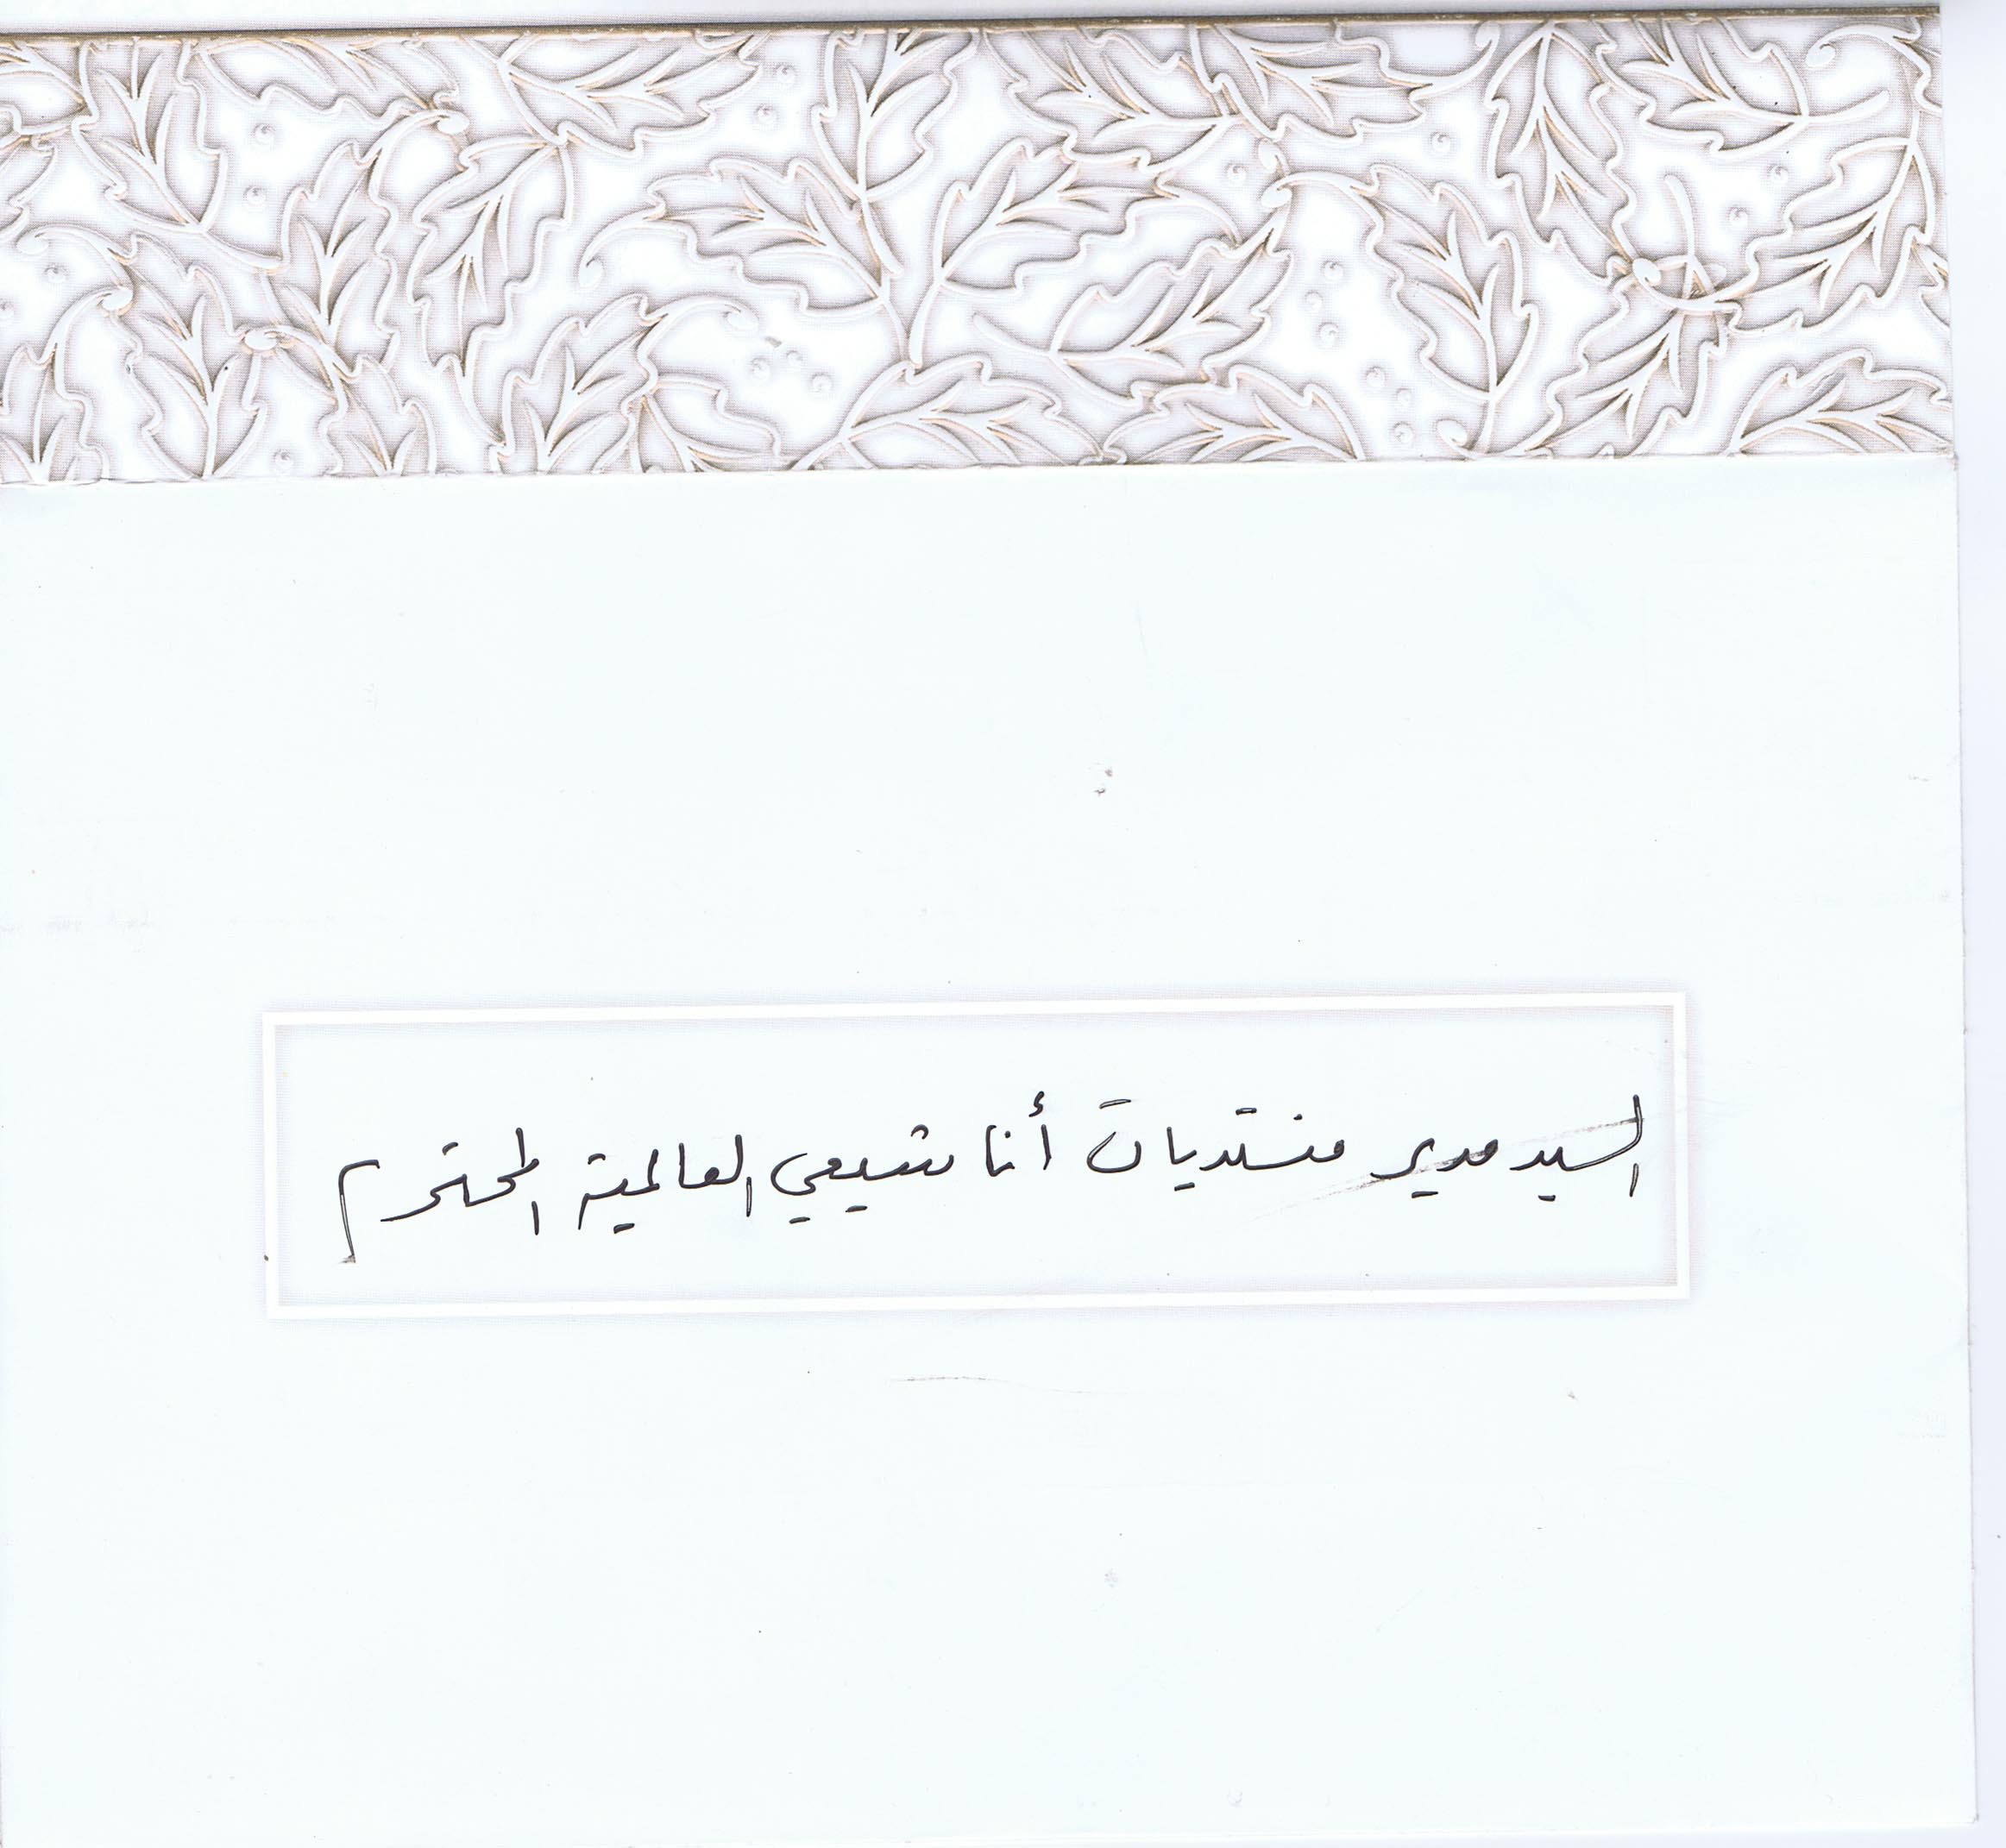 السيد مدير منتديات أنا شيعي العالمية المحترم